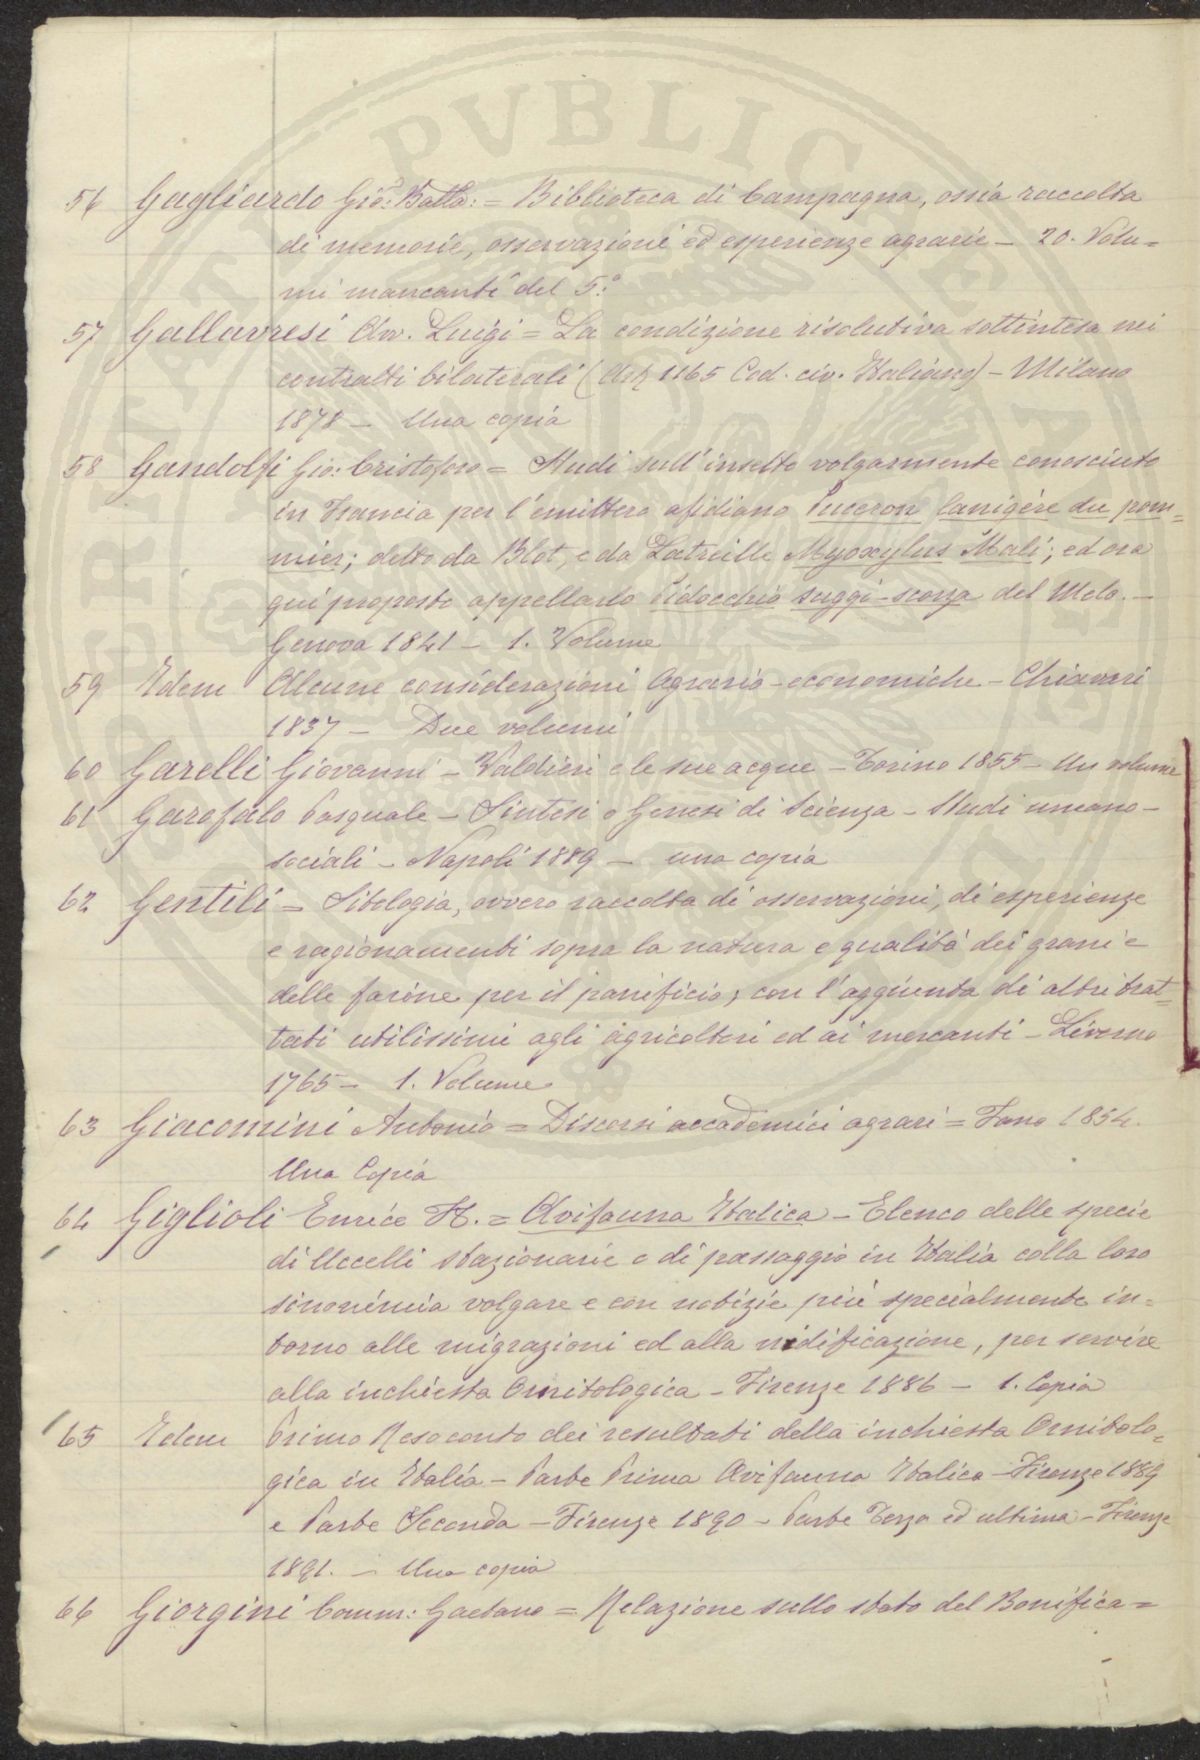 56 Gagliardo Gio: Batta: = Biblioteca di Campagna, ossia raccolta
di memorie, osservazioni ed esperienze agrarie - 20. Volu=
mi mancanti del 5.°
57 Gallavresi Avv. Luigi = La condizione risolutiva sottintesa nei
contratti bilaterali (Art. 1165 Cod. civ. Italiano) - Milano
1878 - Una copia
58 Gandolfi Gio: Cristoforo = Studi sull'insetto volgarmente conosciuto
in Francia per l'emittero afidiano Puceron lanigère du pom=
mier; detto da Blot, e da Latreille Myoxylus Mali; ed ora
qui proposto appellarlo Pidocchio suggi-scorza del Melo. -
Genova 1841 - 1. Volume
59 Idem Alcune considerazioni Agrario-economiche - Chiavari
1837 - Due volumi
60 Garelli Giovanni - Valdieri e le sue acque - Torino 1855 - Un volume
61 Garofalo Pasquale - Sintesi o Genesi di Scienza - Studi umano-
sociali - Napoli 1889 - una copia
62 Gentili = Sitologia, ovvero raccolta di osservazioni, di esperienze
e ragionamenti sopra la natura e qualità dei grani e
delle farine per il panificio; con l'aggiunta di altri trat=
tati utilissimi agli agricoltori ed ai mercanti - Livorno
1765 - 1. Volume
63 Giacomini Antonio = Discorsi accademici agrari = Fano 1854.
Una Copia
64 Giglioli Enrico H. = Avifauna Italica - Elenco delle specie
di Uccelli stazionarie o di passaggio in Italia colla loro
sinonimia volgare e con notizie più specialmente in=
torno alle migrazioni ed alla nidificazione, per servire
alla inchiesta Ornitologica - Firenze 1886 - 1. Copia
65 Idem Primo Resoconto dei resultati della inchiesta Ornitolo=
gica in Italia - Parte Prima Avifauna Italica - Firenze 1889
e Parte Seconda - Firenze 1890 - Parte Terza ed ultima - Firenze
1891. - Una copia
66 Giorgini Comm: Gaetano = Relazione sullo stato del Bonifica=